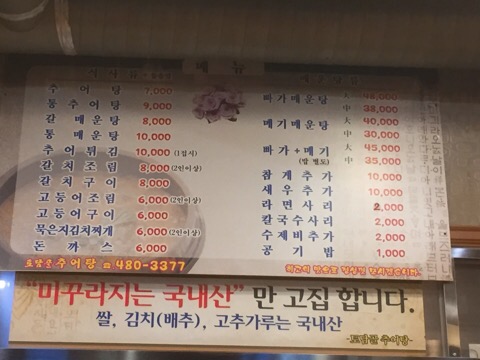 식사류
메뉴
추어탕 7,000
통추어탕 9,000
갈매운탕 8,000
통매운탕 10,000
추어튀김 10,000 (1접시)
갈치조림 8,000 (2인이상)
갈치구이 8,000
고등어조림 6,000 (2인이상)
고등어구이 6,000
묵은지김치찌개 6,000 (2인이상)
돈까스 6,000
토담골 추어탕 ☎ 480-3377
빠가매운탕 大 48,000
中 38,000
메기매운탕 大 40,000
中 30,000
빠가+메기 大 45,000
(밥 별도) 中 35,000
참게추가 10,000
새우추가 10,000
라면사리 2,000
칼국수사리 2,000
수제비추가 2,000
공기밥 1,000
"미꾸라지는 국내산" 만 고집 합니다.
쌀, 김치(배추), 고추가루는 국내산
-토담골 추어탕-